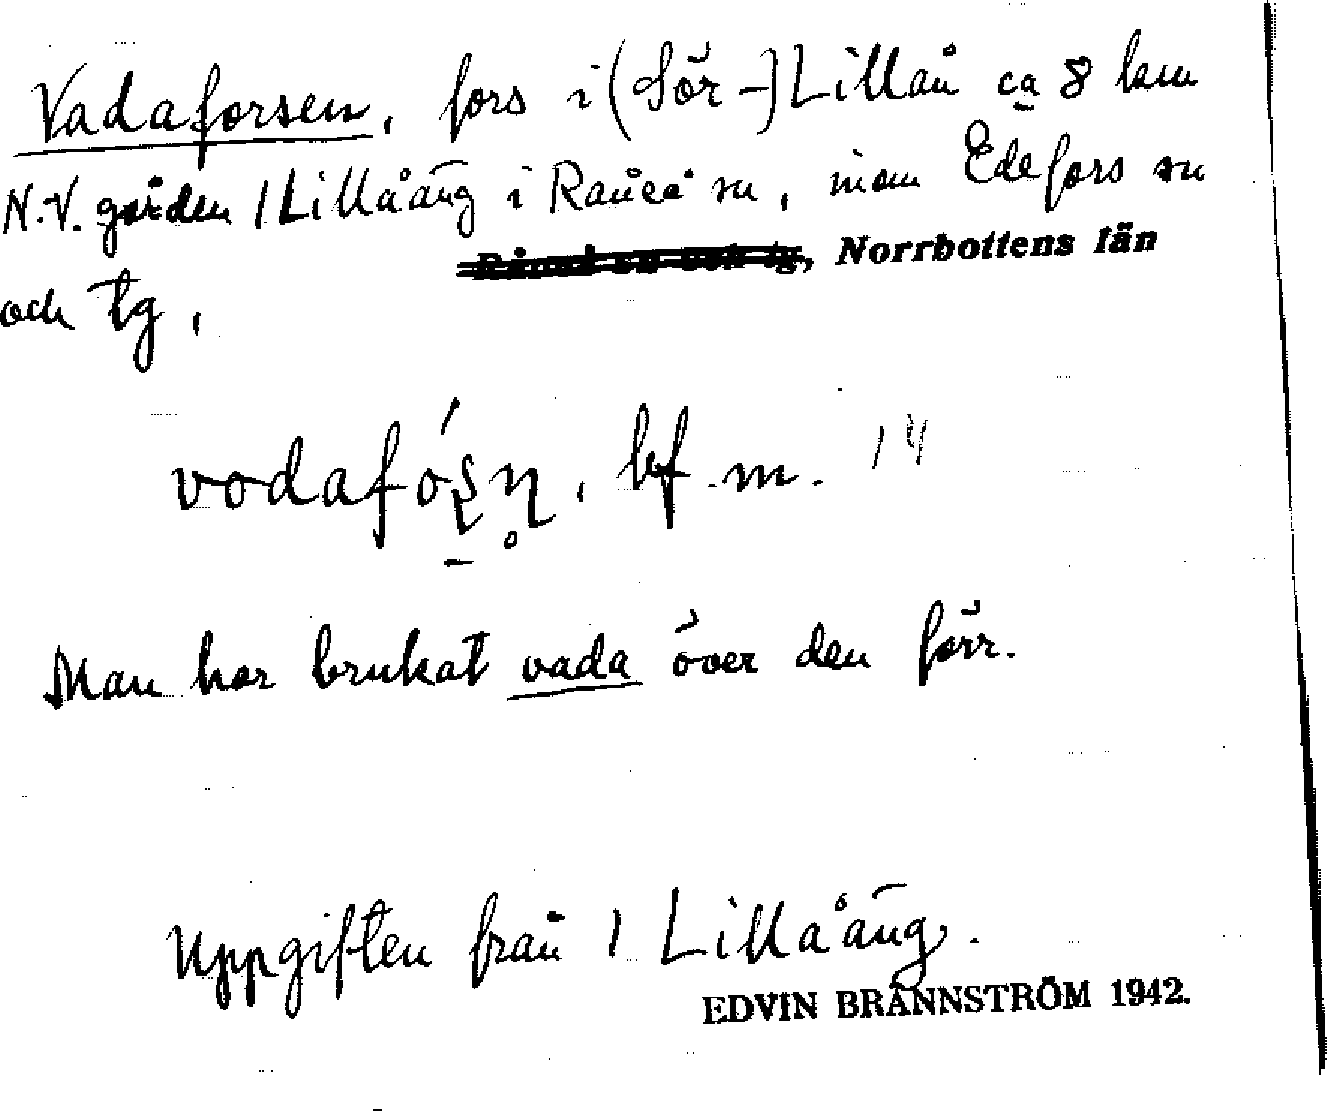 Vadaforsen, fors i (Sör-) Lillån ca 8 km
N.V. gården 1 Lillåäng i Råneå sn, inom Edefors sn
Råneå sn och tg, Norrbottens län
och tg,
vodafóʂɳ̥, bf. m. 14
Man har brukat vada över den förr.
Uppgiften från 1 Lillåäng.
EDVIN BRÄNNSTRÖM 1942.